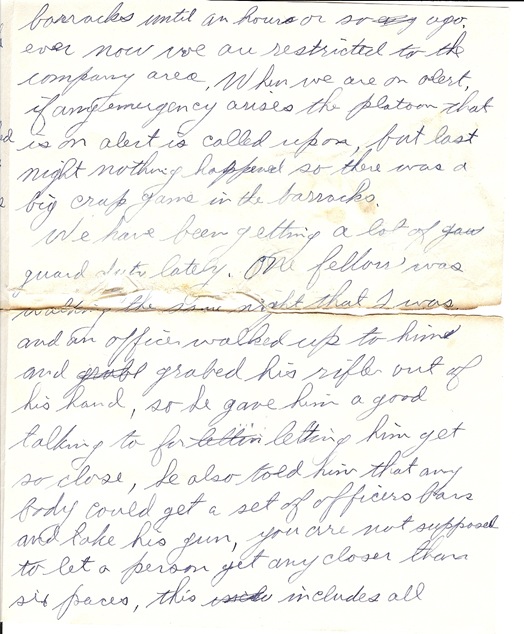 barracks until an hours or so ago.
even now we are restricted to the
company area. When we are on alert,
if any emergency arises the platoon that
is on alert is called upon, but last
night nothing happened so there was a
big crap game in the barracks.
We have been getting a lot of
guard duty lately. One fellow was
walking the same night that I was
and an officer walked up to him
and grabed his rifle out of
his hand, so he gave him a good
talking to for letting him get
so close, he also told him that any
body could get a set of officers bars
and take his gun, you are not supposed
to let a person get any closer than
six paces, this includes all